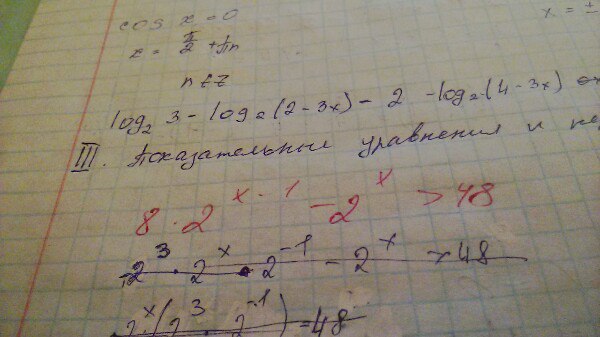 cos x = 0
x = ±
x = π/2 + πn
n ∈ Z
log₂ 3 - log₂(2 - 3x) - 2 - log₂(4 - 3x)
III. Показательные уравнения и
8 · 2^(x - 1) - 2^x > 48
2³ · 2^x · 2^(-1) - 2^x > 48
2^x(2³ · 2^(-1)) = 48